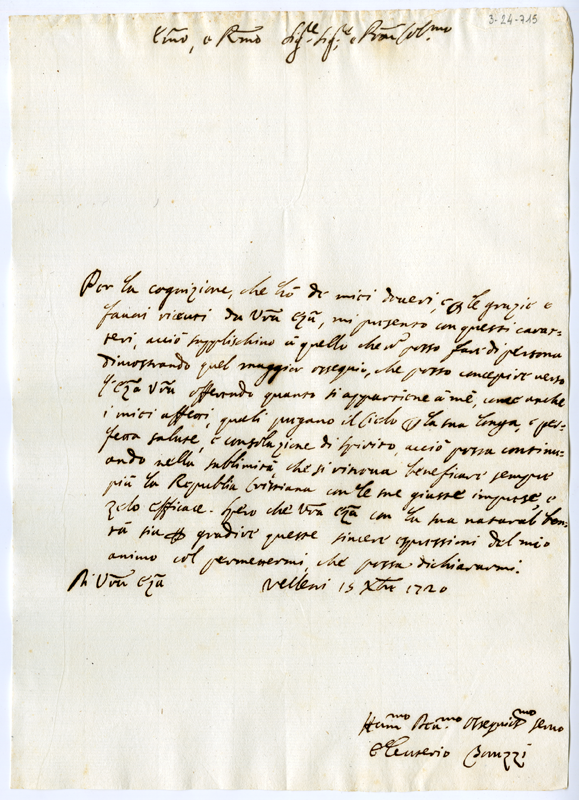 3-24-715
Emo, e Rmo Sigre Sigre e Pron Colmo
Per la cognizione, che hò de miei doveri, e p le grazie e
favori riceuti da Vra Eza, mi presento con questi carat-
teri, acciò supplischino à quello che nō posso fare di persona
dimostrando quel maggior ossequio, che posso concepire verso
l'Eza Vra offerendo quanto si appartiene à mè, come anche
i miei affetti, quali pregano il Cielo p la sua longa e per-
fetta salute, e consolazione di spirito, acciò possa continu-
ando nella sublimità, che si ritrova beneficare sempre
più la Republica Cristiana con le sue giuste imprese, e
zelo efficace. Spero che Vra Eza con la sua natural bon-
tà sia p gradire queste sincere espressioni del mio
animo col permettermi, che possa dichiararmi.
Di Vra Eza Velletri 15 Xbre 1720
Hummo Devmo Ossequiosmo servo
Eleuterio Bruzzi